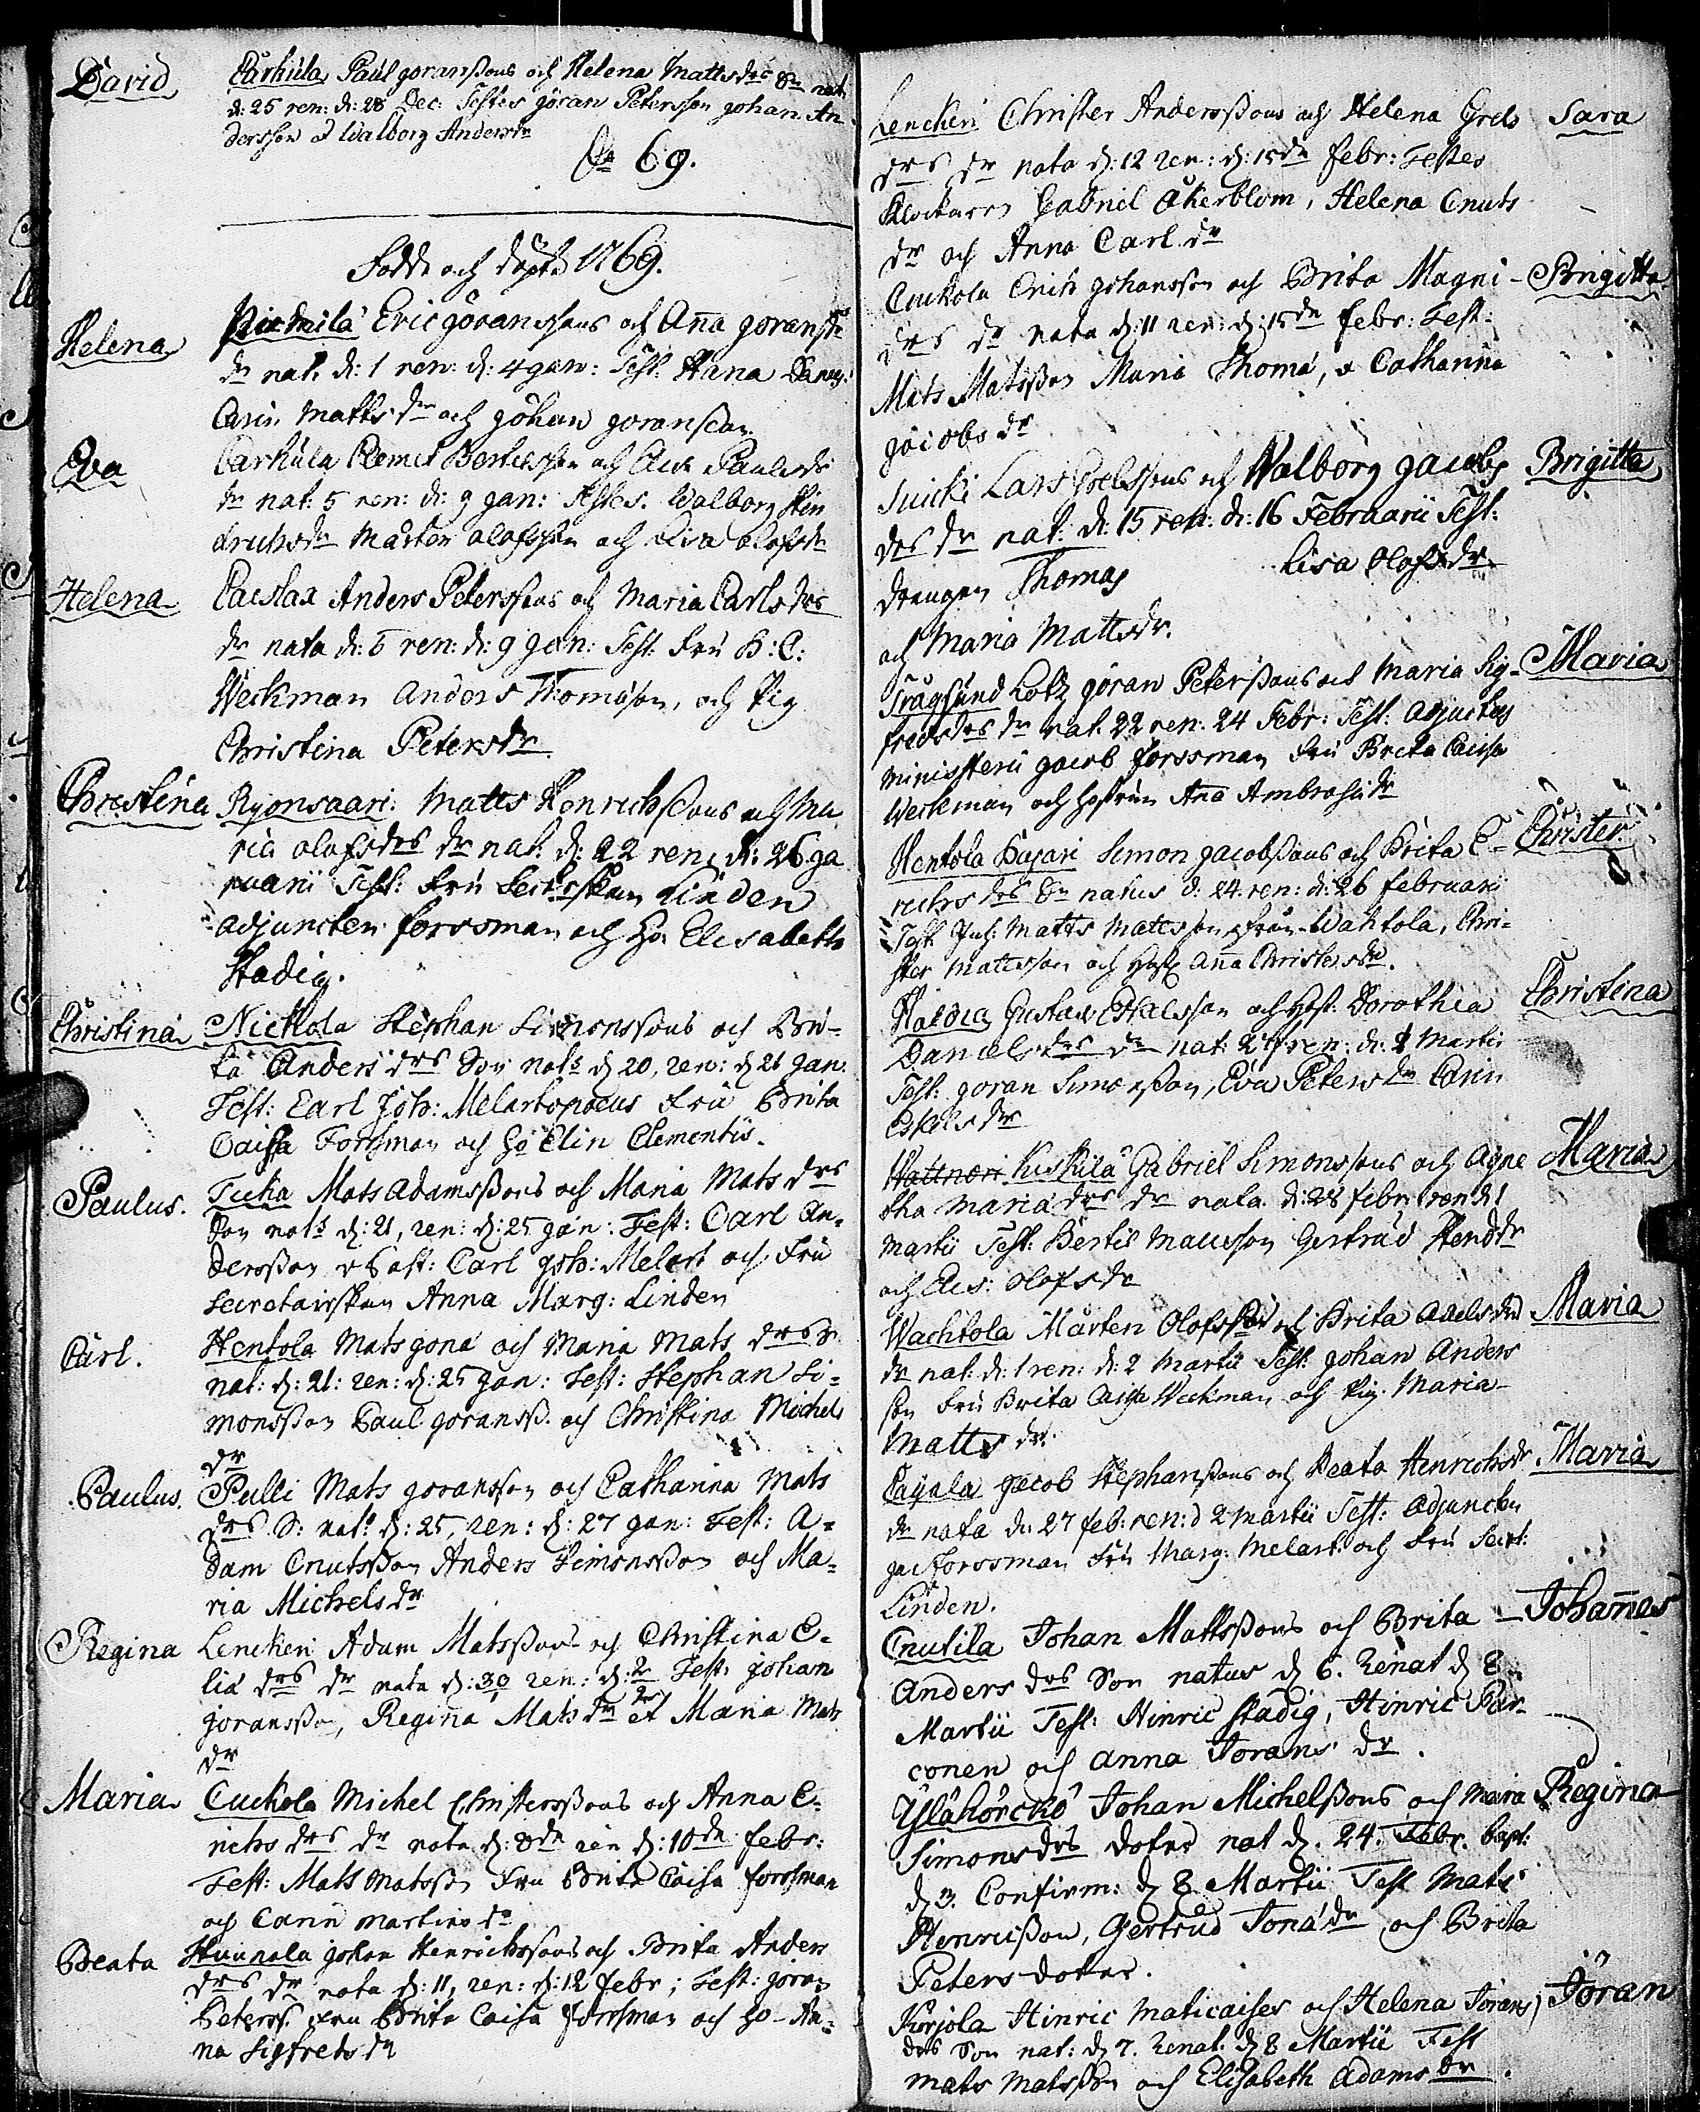 David
Carkula Paul göranssons och Helena Mattsdrs Sn nat.
d: 25 ren: d: 28 Dec: Testes göran Petersson johan An
dersson & Walborg Andersdr
Sa 69.
Födde och döpte 1769.
Helena
Eric göranssons och Anna göransdr
dr nat. d: 1 ren: d: 4 gan: Test: Hana
Carin Mattsdr och johan göransson
Eva
Carkula Clemet Bertilsson och Elis Paulsdr
dr nat: 5 ren: d: 9 gan: Testes. Walborg Hin
drichsdr Mårten olofsson och Lisa olofsdr
Helena
Caislax Anders Peterssons och Maria Carlsdrs
dr nata d: 5 ren: d: 9 gan: Test: Fru B: C:
Weckman Anders Thomasson, och Pig
Christina Petersdr
Christina
Ryönsaari: Matts Henrichssons och Ma
ria olofsdrs dr nat: d: 22 ren: d: 26 ja
nuarii Test: Fru Secrtrskan Linden
adjuncten forssman och Ho Elisabeth
Stadig.
Christina
Nickola Stephan Simonssons och Bri-
ta Anders drs Son nats d 20, ren: d 26 Jan.
Test: Carl Joh: Melartopoeus Fru Brita
Caisa Forssman och Ho Elin Clementis.
Paulus.
Tuka Mats Adamssons och Maria Mats drs
Son nats d: 21, ren: d: 25 Jan: Test: Carl An-
dersson Past: Carl Joh: Melart och Fru
Secretairskan Anna Marg: Linden
Carl.
Hentola Mats Jona och Maria Mats drs S:
nat: d: 21: ren: d: 25 Jan: Test: Stephan Si-
monsson Paul Göranss. och Christina Michels
dr
Paulus.
Pulli Mats Göransson och Catharina Mats
drs S: nats d: 25, ren: d: 27 Jan: Test: A-
dam Cnutsson Anders Simonsson och Ma-
ria Michels dr
Regina
Lenckeri Adam Matssons och Christina E-
liæ drs dr nata d: 30 ren: d: 2 Test: Johan
Göransson, Regina Mats dr et Maria Mats
dr
Maria
Cuckola Michel Christerssons och Anna E-
richs drs dr nata d: 8dn ren d: 10dn Febr:
Test: Mats Matsson Fru Brita Caisa Forssman
och Carin Martins dr
Beata
Hunnala Johan Henrichssons och Brita Anders
drs dr nata d: 11, ren: d: 12 Febr; Test: Jöran
Peterss. Fru Brita Caisa Forssman och Ho An-
na Sigfrets dr
Lenckeri Christer Anderssons och Helena Grels
Sara
drs dr nata d: 12 ren: d: 15dn Febr: Testes
Klockaren Gabriel Åkerblom, Helena Cnuts
dr och Anna Carl dr
Cuckola Erich Johansson och Brita Magni-
Brigitta
drs dr nata d: 11 ren: d: 15dn Febr: Test:
Mats Matsson Maria Thomæ, & Catharina
Jacobs dr
Suicki Lars och Walborg Jacobs
Brigitta
drs dr nat: d: 15 ren: d: 16 Februarii Test:
drengen Thomas Lisa Olofsdr
och Maria Mattsdr.
Trågsund Lotz göran Peterssons och Maria Sig-
Maria
fredsdrs dr nat. 22 ren: 24 Febr: Test: Adjunctus
Ministerii Jacob Forssman Fru Brita Caisa
Weckman och Hustrun Anna Ambrosiidr
Hentola Simon Jacobssons och Brita E-
Christer.
richs drs Sn natus d: 24. ren: d: 26 Februarii
Test Matts Mattsson från Wahtola, Chri-
ster Mattsson och Hust Anna Christersdr.
Gustav Eskelsson och Hust: Dorothea
Christina
Daniels drs dr nat: 27 ren: d: 2 Martii
Test: göran Simonsson, Eva Peters dr Carin
Eskelsdr
Wattnori Kuskila Gabriel Simonssons och Agne
Maria
tha Mariædrs dr nata d: 28 febr: ren d 1
Martii Test: Bertil Mausson Gertrud Hend dr
och Elis: Olofsdr
Wachtola Mårten Olofssons och Brita Axelsdrs
Maria
dr nat: d: 1 ren: d: 2 Martii Test: Johan Anders
son Fru Brita Caisa Weckman och Pig. Maria
Matts dr.
Cayala Jacob Stephanssons och Beata Henrichsdr
Maria
dr nata d: 27 feb: ren: d 2 Martii Test: Adjuncten
Jac Forssman Fru Marg: Melart: och Fru Secrt:
Linden.
Cnutila Johan Mattssons och Brita
Johannes
Anders drs Son natus d 6. Renat d 8
Martii Test: Hinric Stadig, Hinric Par-
conen och Anna Jörans dr.
Ylähörckö Johan Michelssons och Maria
Regina
Simonsdrs doter nat d. 24. Febr. bapt:
d 3. Confirm: d 8 Martii Test Mats
Henricsson, Gertrud Jonædr och Brita
Peters doter.
Korjola Hinric Maticaises och Helena Jörans
Jöran
drs Son nat: d 7. Renat. d 8 Martii Test
Mats Matsson och Elisabeth Adams dr.